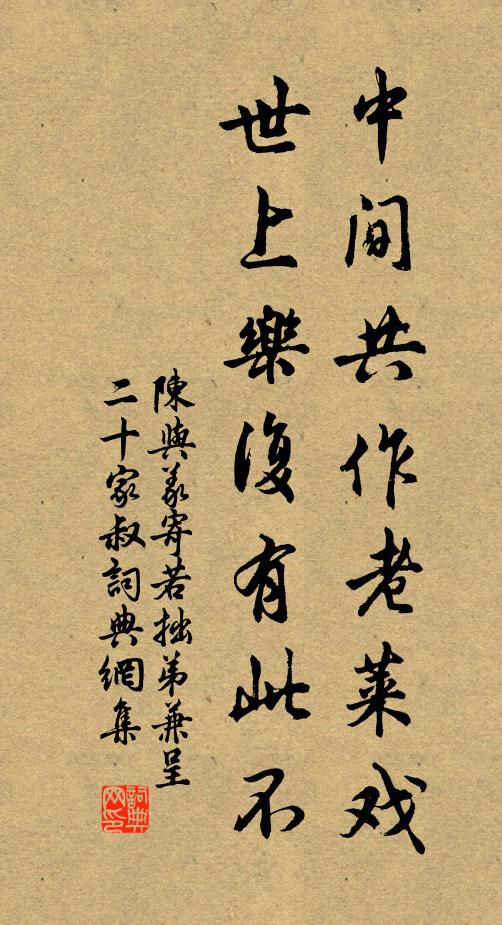 中间共作老莱戏
世上樂復有此不
陳與義寄若拙弟兼呈
二十家叔詞典網集
詞典
网印